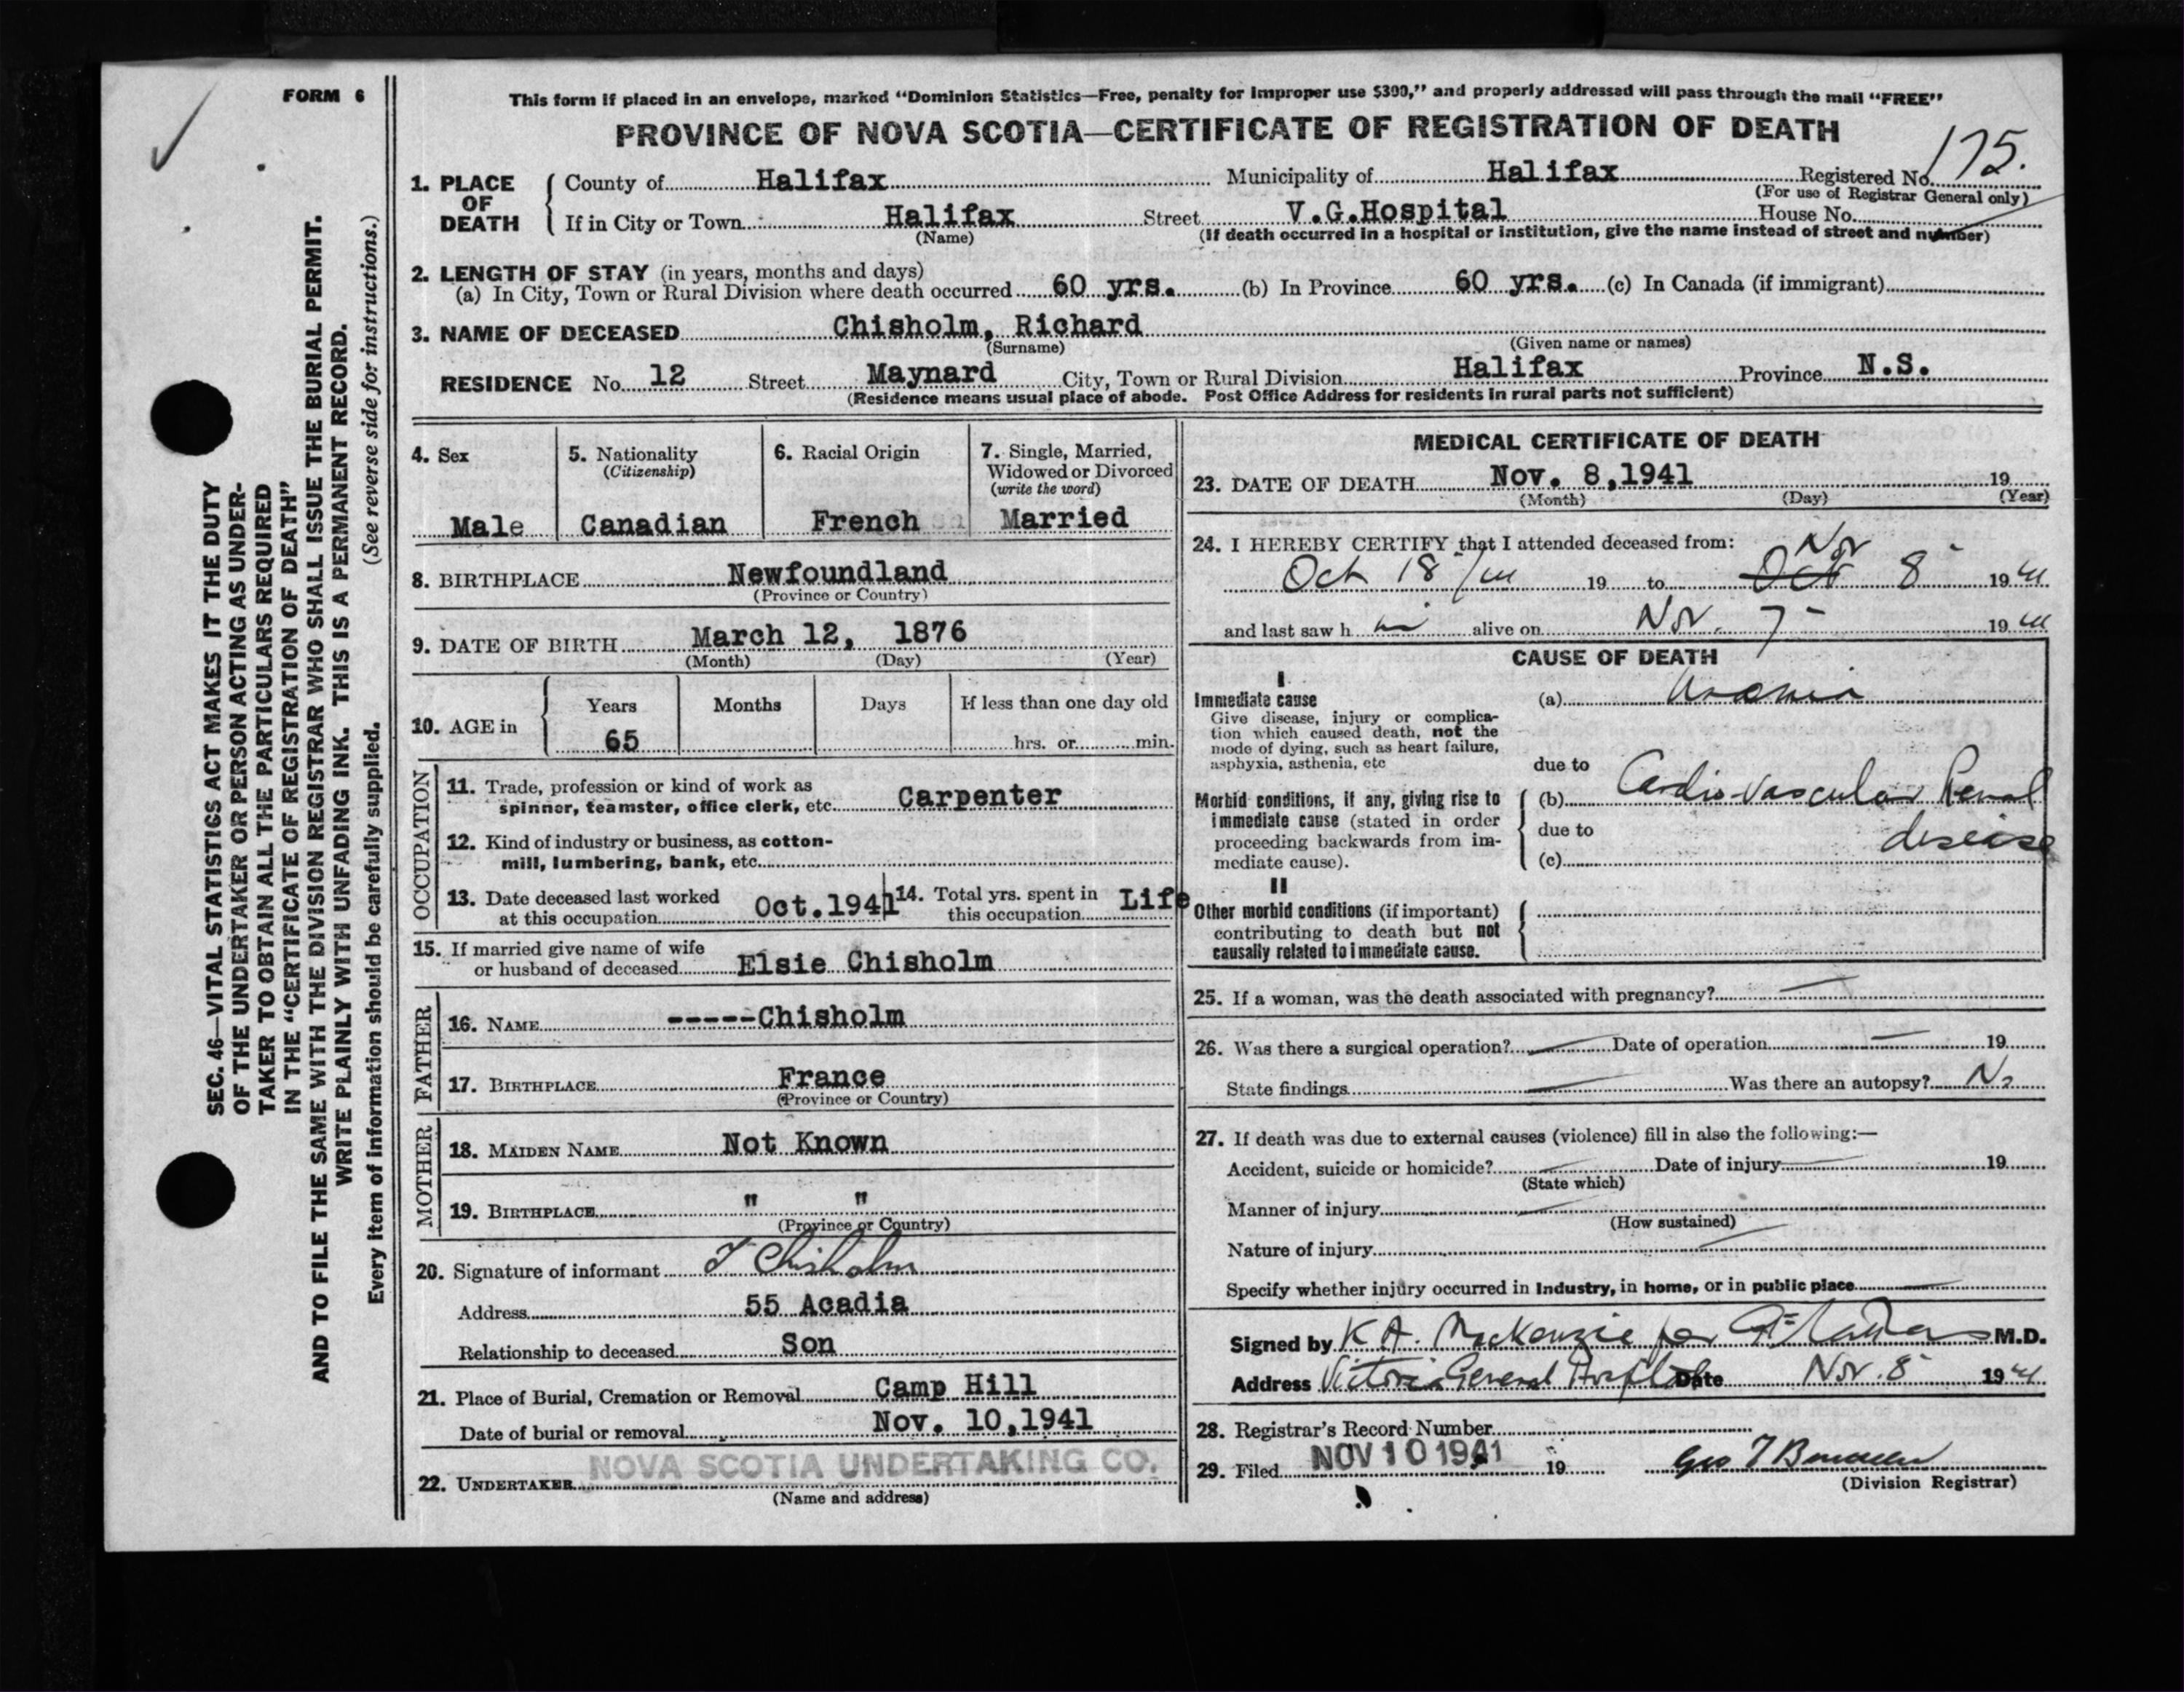 FORM 6
SEC. 46—VITAL STATISTICS ACT MAKES IT THE DUTY
OF THE UNDERTAKER OR PERSON ACTING AS UNDER-
TAKER TO OBTAIN ALL THE PARTICULARS REQUIRED
IN THE "CERTIFICATE OF REGISTRATION OF DEATH"
AND TO FILE THE SAME WITH THE DIVISION REGISTRAR WHO SHALL ISSUE THE BURIAL PERMIT.
WRITE PLAINLY WITH UNFADING INK. THIS IS A PERMANENT RECORD.
Every item of information should be carefully supplied. (See reverse side for instructions.)
This form if placed in an envelope, marked "Dominion Statistics—Free, penalty for improper use $300," and properly addressed will pass through the mail "FREE"
PROVINCE OF NOVA SCOTIA—CERTIFICATE OF REGISTRATION OF DEATH
1. PLACE OF DEATH County of Halifax Municipality of Halifax Registered No. 175.
(For use of Registrar General only)
If in City or Town Halifax Street V.G.Hospital House No.
(Name) (If death occurred in a hospital or institution, give the name instead of street and number)
2. LENGTH OF STAY (in years, months and days)
(a) In City, Town or Rural Division where death occurred 60 yrs. (b) In Province 60 yrs. (c) In Canada (if immigrant)
3. NAME OF DECEASED Chisholm, Richard
(Surname) (Given name or names)
RESIDENCE No. 12 Street Maynard City, Town or Rural Division Halifax Province N.S.
(Residence means usual place of abode. Post Office Address for residents in rural parts not sufficient)
4. Sex 5. Nationality 6. Racial Origin 7. Single, Married,
(Citizenship) Widowed or Divorced
(write the word)
Male Canadian French Married
8. BIRTHPLACE Newfoundland
(Province or Country)
9. DATE OF BIRTH March 12, 1876
(Month) (Day) (Year)
10. AGE in Years Months Days If less than one day old
65 hrs. or min.
OCCUPATION
11. Trade, profession or kind of work as
spinner, teamster, office clerk, etc. Carpenter
12. Kind of industry or business, as cotton-
mill, lumbering, bank, etc.
13. Date deceased last worked
at this occupation Oct.1941
14. Total yrs. spent in
this occupation Life
15. If married give name of wife
or husband of deceased Elsie Chisholm
FATHER
16. NAME -----Chisholm
17. BIRTHPLACE France
(Province or Country)
MOTHER
18. MAIDEN NAME Not Known
19. BIRTHPLACE " "
(Province or Country)
20. Signature of informant Chisholm
Address 55 Acadia
Relationship to deceased Son
21. Place of Burial, Cremation or Removal Camp Hill
Date of burial or removal Nov. 10,1941
22. UNDERTAKER NOVA SCOTIA UNDERTAKING CO.
(Name and address)
MEDICAL CERTIFICATE OF DEATH
23. DATE OF DEATH Nov. 8,1941 19
(Month) (Day) (Year)
24. I HEREBY CERTIFY that I attended deceased from:
Oct 18/41 19 to Oct Nov 8 1941
and last saw h im alive on Nov. 7 1941
CAUSE OF DEATH
I
Immediate cause (a) Uremia
Give disease, injury or complica-
tion which caused death, not the
mode of dying, such as heart failure,
asphyxia, asthenia, etc
due to
Morbid conditions, if any, giving rise to (b) Cardio-Vascular Renal
immediate cause (stated in order due to disease
proceeding backwards from im-
mediate cause). (c)
II
Other morbid conditions (if important)
contributing to death but not
causally related to immediate cause.
25. If a woman, was the death associated with pregnancy? —
26. Was there a surgical operation? — Date of operation — 19
State findings — Was there an autopsy? No
27. If death was due to external causes (violence) fill in also the following:—
Accident, suicide or homicide? — Date of injury — 19
(State which)
Manner of injury —
(How sustained)
Nature of injury —
Specify whether injury occurred in Industry, in home, or in public place —
Signed by K A. MacKenzie per M.D.
Address Victoria General Hospital Date Nov. 8 1941
28. Registrar's Record Number
29. Filed NOV 10 1941 19
(Division Registrar)